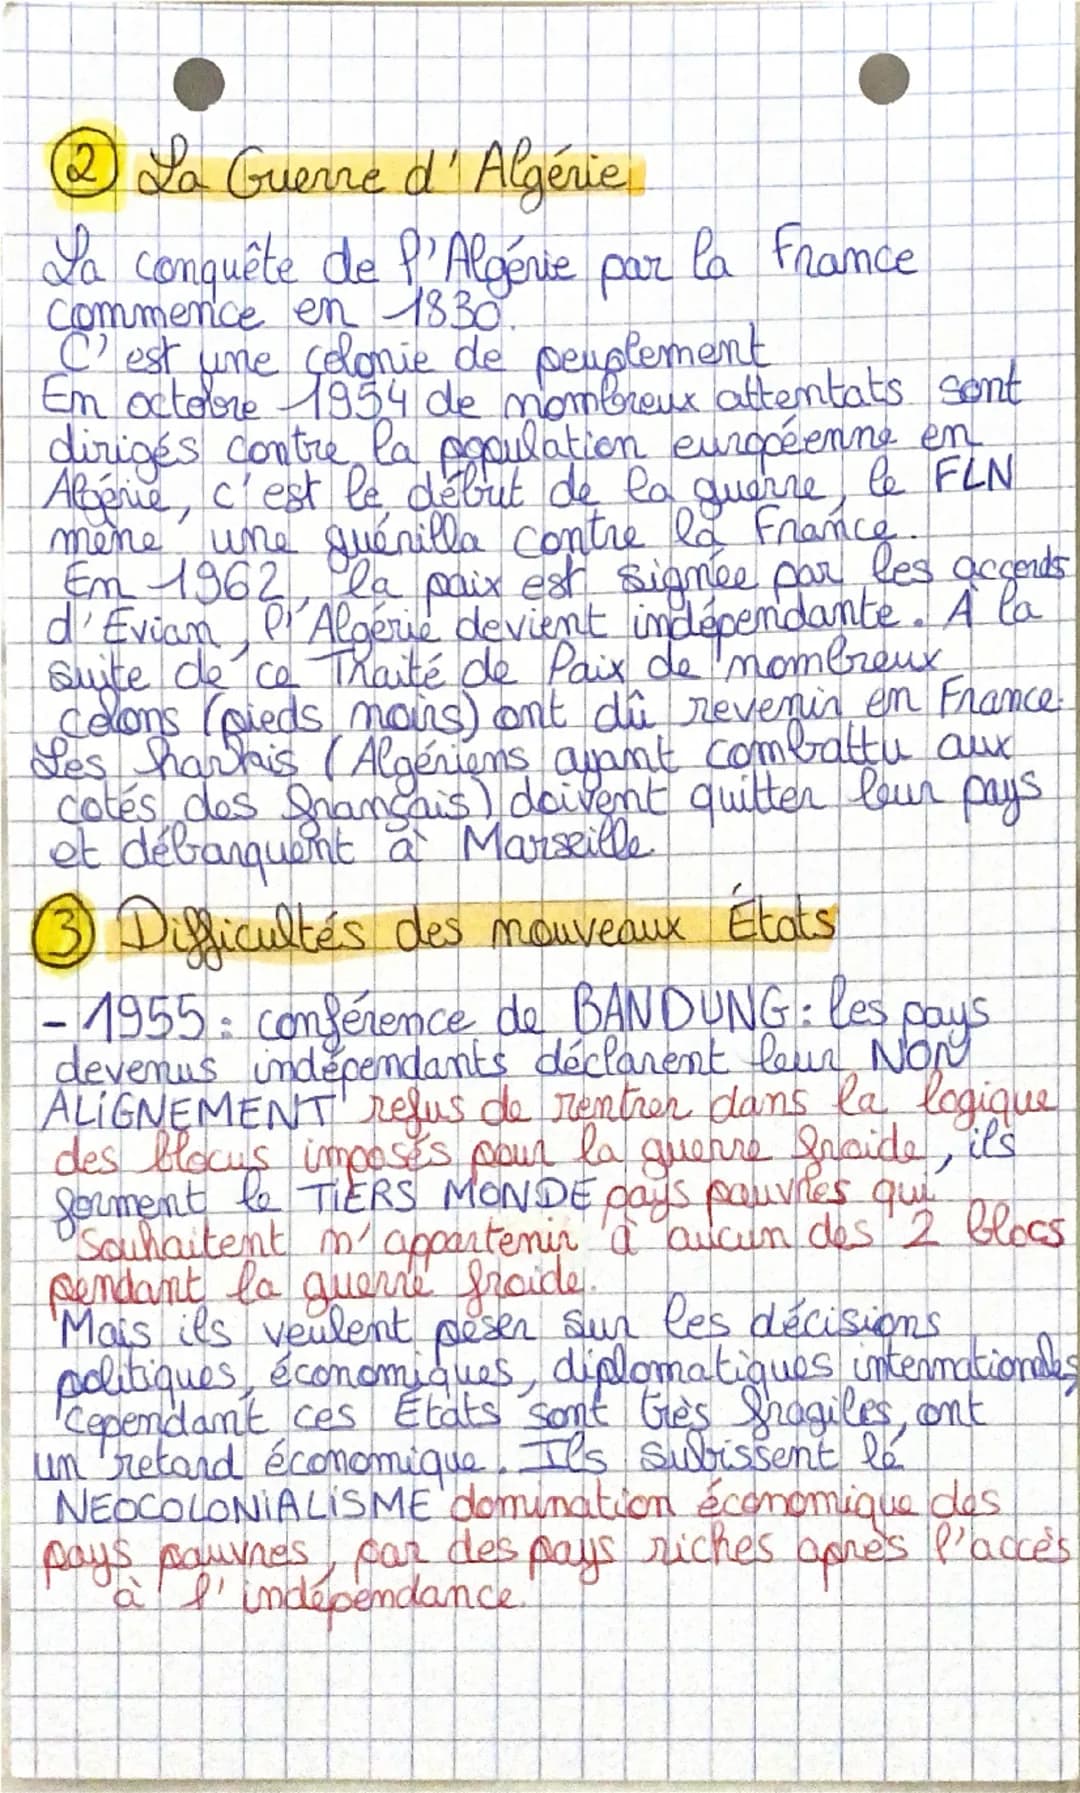 ② La Guerre d'Algérie
La conquête de l'Algérie par la France
commence en 1830.
C'est une colonie de peuplement
En octobre 1954 de nombreux attentats sont
dirigés contre la population européenne en
Algérie, c'est le début de la guerre, le FLN
mène une guérilla contre la France.
En 1962, la paix est signée par les accords
d'Evian, l'Algérie devient indépendante. A la
suite de ce Traité de Paix de nombreux
colons (pieds noirs) ont dû revenir en France.
Les harkis (Algériens ayant combattu aux
cotés des français) doivent quitter leur pays
et débarquent à Marseille.
③ Difficultés des nouveaux États
- 1955: conférence de BANDUNG: les pays
devenus indépendants déclarent leur NON
ALIGNEMENT refus de rentrer dans la logique
des blocus imposés pour la guerre froide, ils
forment le TIERS MONDE pays pauvres qui
souhaitent n'appartenir à aucun des 2 blocs
pendant la guerre froide.
Mais ils veulent peser sur les décisions
politiques, économiques, diplomatiques internationales
cependant ces États sont très fragiles, ont
un retard économique. Ils subissent le
NEOCOLONIALISME domination économique des
pays pauvres, par des pays riches après l'accès
à l'indépendance.